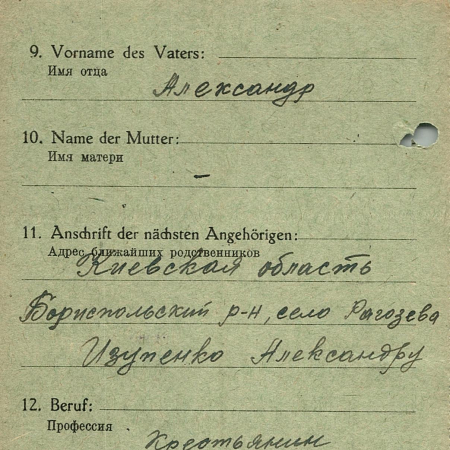 9. Vorname des Vaters:
Имя отца
Александр
10. Name der Mutter:
Имя матери
–
11. Anschrift der nächsten Angehörigen:
Адрес ближайших родственников
Киевская область
Бориспольский р-н, село Рагозева
Изупенко Александру
12. Beruf:
Профессия
Крестьянин